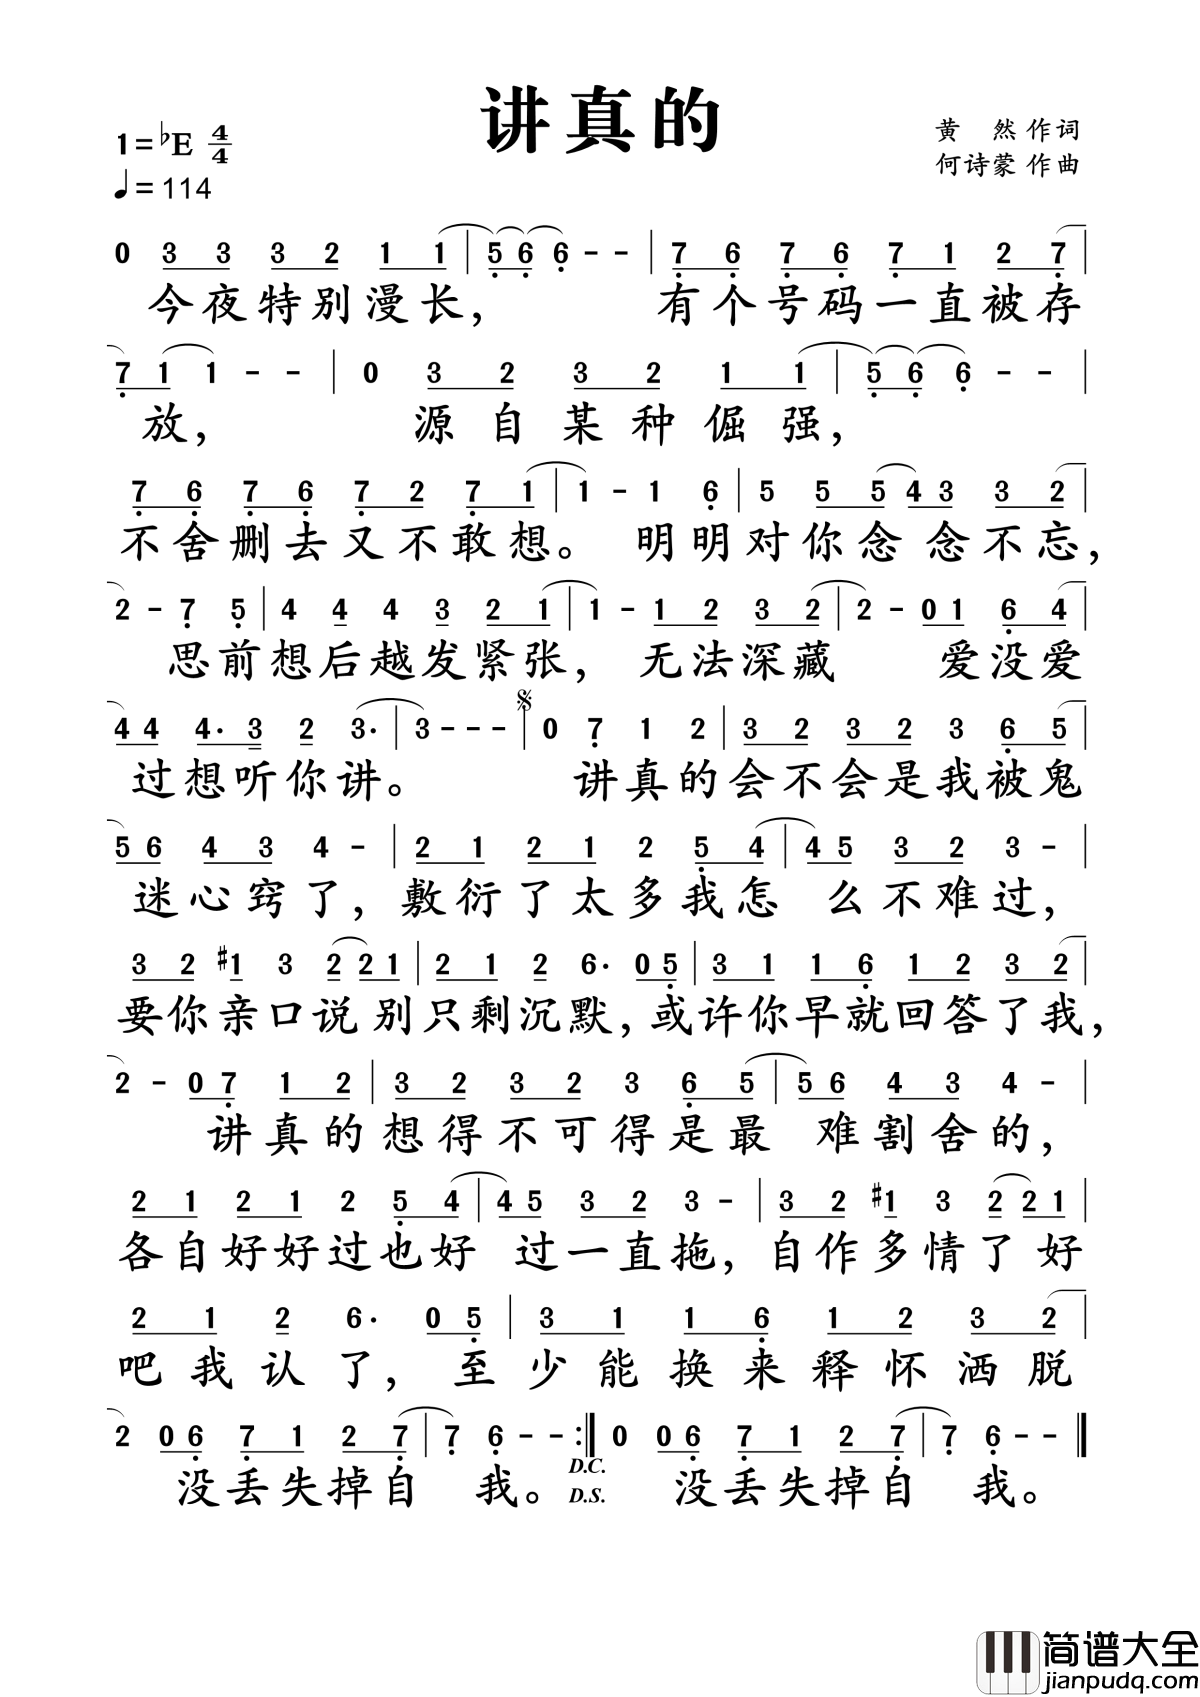 讲真的
1=♭E 4/4
♩=114
黄 然 作词
何诗蒙 作曲
0 3 3 3 2 1 1 | 5 6 6 - - | 7 6 7 6 7 1 2 7 |
今夜特别漫长， 有个号码一直被存
7 1 1 - - | 0 3 2 3 2 1 1 | 5 6 6 - - |
放， 源自某种倔强，
7 6 7 6 7 2 7 1 | 1 - 1 6 | 5 5 5 4 3 3 2 |
不舍删去又不敢想。 明明对你念 念不忘，
2 - 7 5 | 4 4 4 3 2 1 | 1 - 1 2 3 2 | 2 - 0 1 6 4 |
思前想后越发紧张， 无法深藏 爱没爱
4 4 4. 3 2 3. | 3 - - - | 0 7 1 2 | 3 2 3 2 3 6 5 |
过想听你讲。 讲真的会不会是我被鬼
5 6 4 3 4 - | 2 1 2 1 2 5 4 | 4 5 3 2 3 - |
迷心窍了，敷衍了太多我怎 么不难过，
3 2 #1 3 2 2 1 | 2 1 2 6. 0 5 | 3 1 1 6 1 2 3 2 |
要你亲口说 别只剩沉默，或许你早就回答了我，
2 - 0 7 1 2 | 3 2 3 2 3 6 5 | 5 6 4 3 4 - |
讲真的想得不可得是最 难割舍的，
2 1 2 1 2 5 4 | 4 5 3 2 3 - | 3 2 #1 3 2 2 1 |
各自好好过也好 过一直拖，自作多情了 好
2 1 2 6. 0 5 | 3 1 1 6 1 2 3 2 |
吧我认了，至少能换来释怀洒脱
2 0 6 7 1 2 7 | 7 6 - - :‖ 0 0 6 7 1 2 7 | 7 6 - - ‖
没丢失掉自 我。 D.C. D.S. 没丢失掉自 我。
简谱大全
jianpudq.com